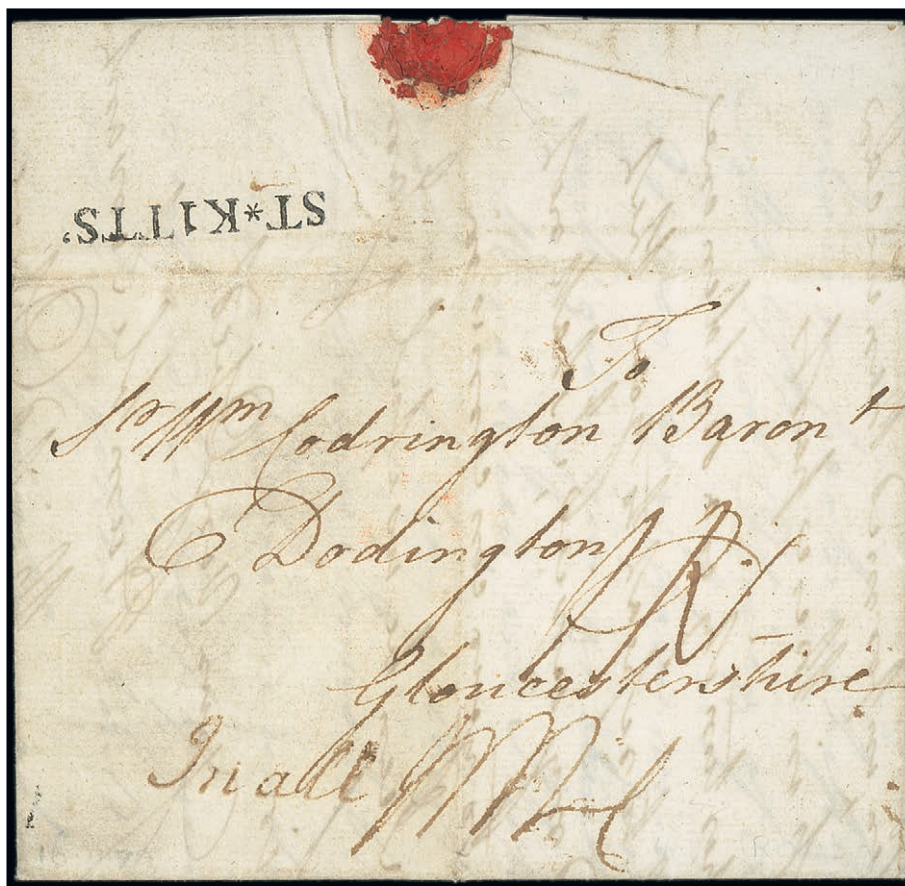 ST*KITTS.
To
Sr Wm Codrington Baront
Dodington
Gloucestershire
In all